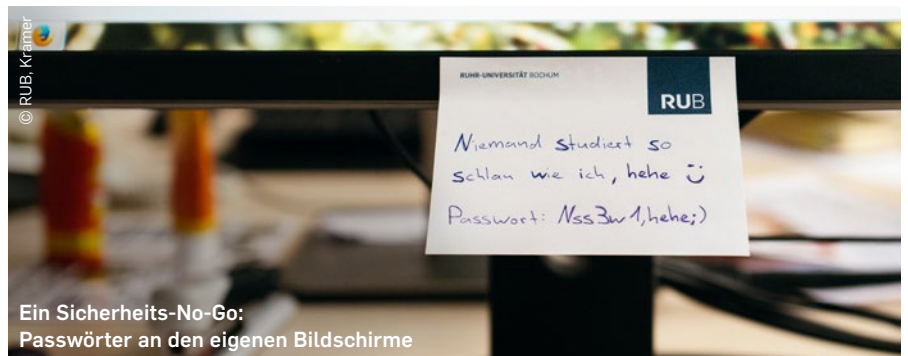 © RUB, Kramer
RUHR-UNIVERSITÄT BOCHUM
RUB
Niemand studiert so
schlau wie ich, hehe ü
Passwort: Nss3w1,hehe;)
Ein Sicherheits-No-Go:
Passwörter an den eigenen Bildschirme